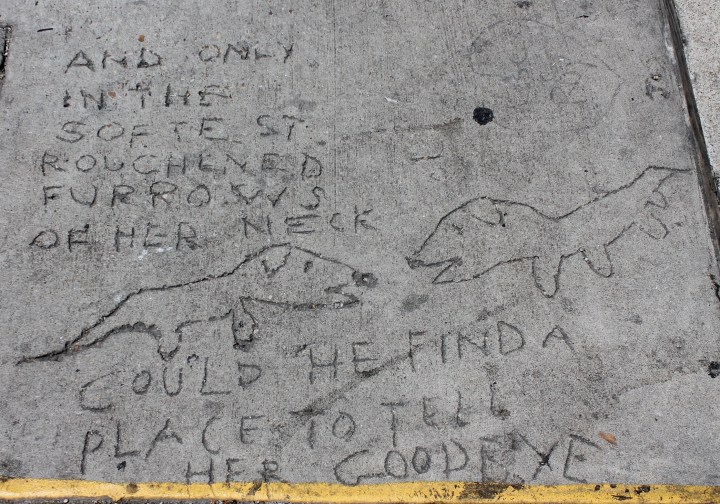 AND ONLY
IN THE
SOFTEST
ROUGHENED
FURROWS
OF HER NECK
COULD HE FIND A
PLACE TO TELL
HER GOODEYE